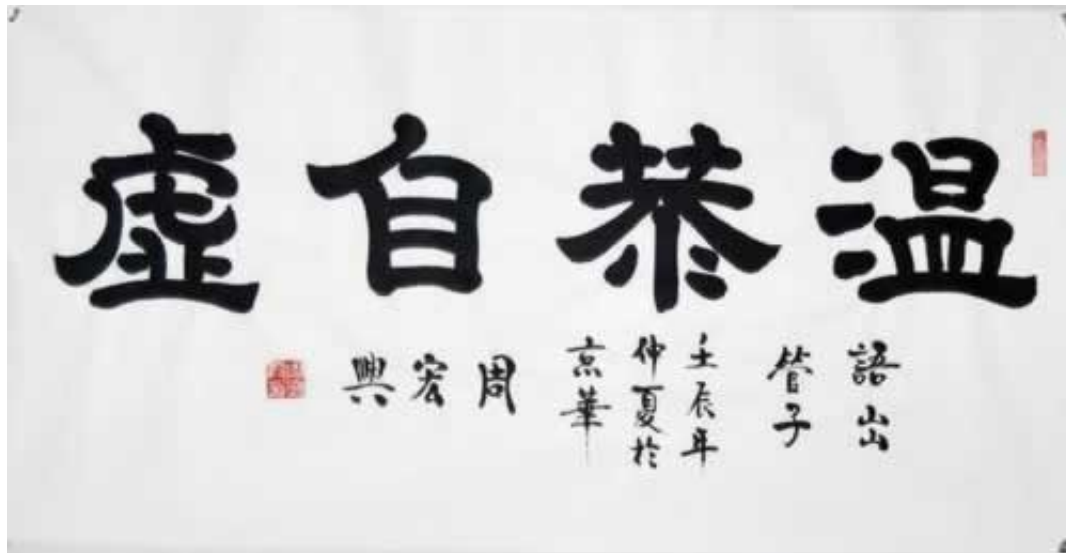 温恭自虚
語出
管子
壬辰年
仲夏於
京華
周
宏
興